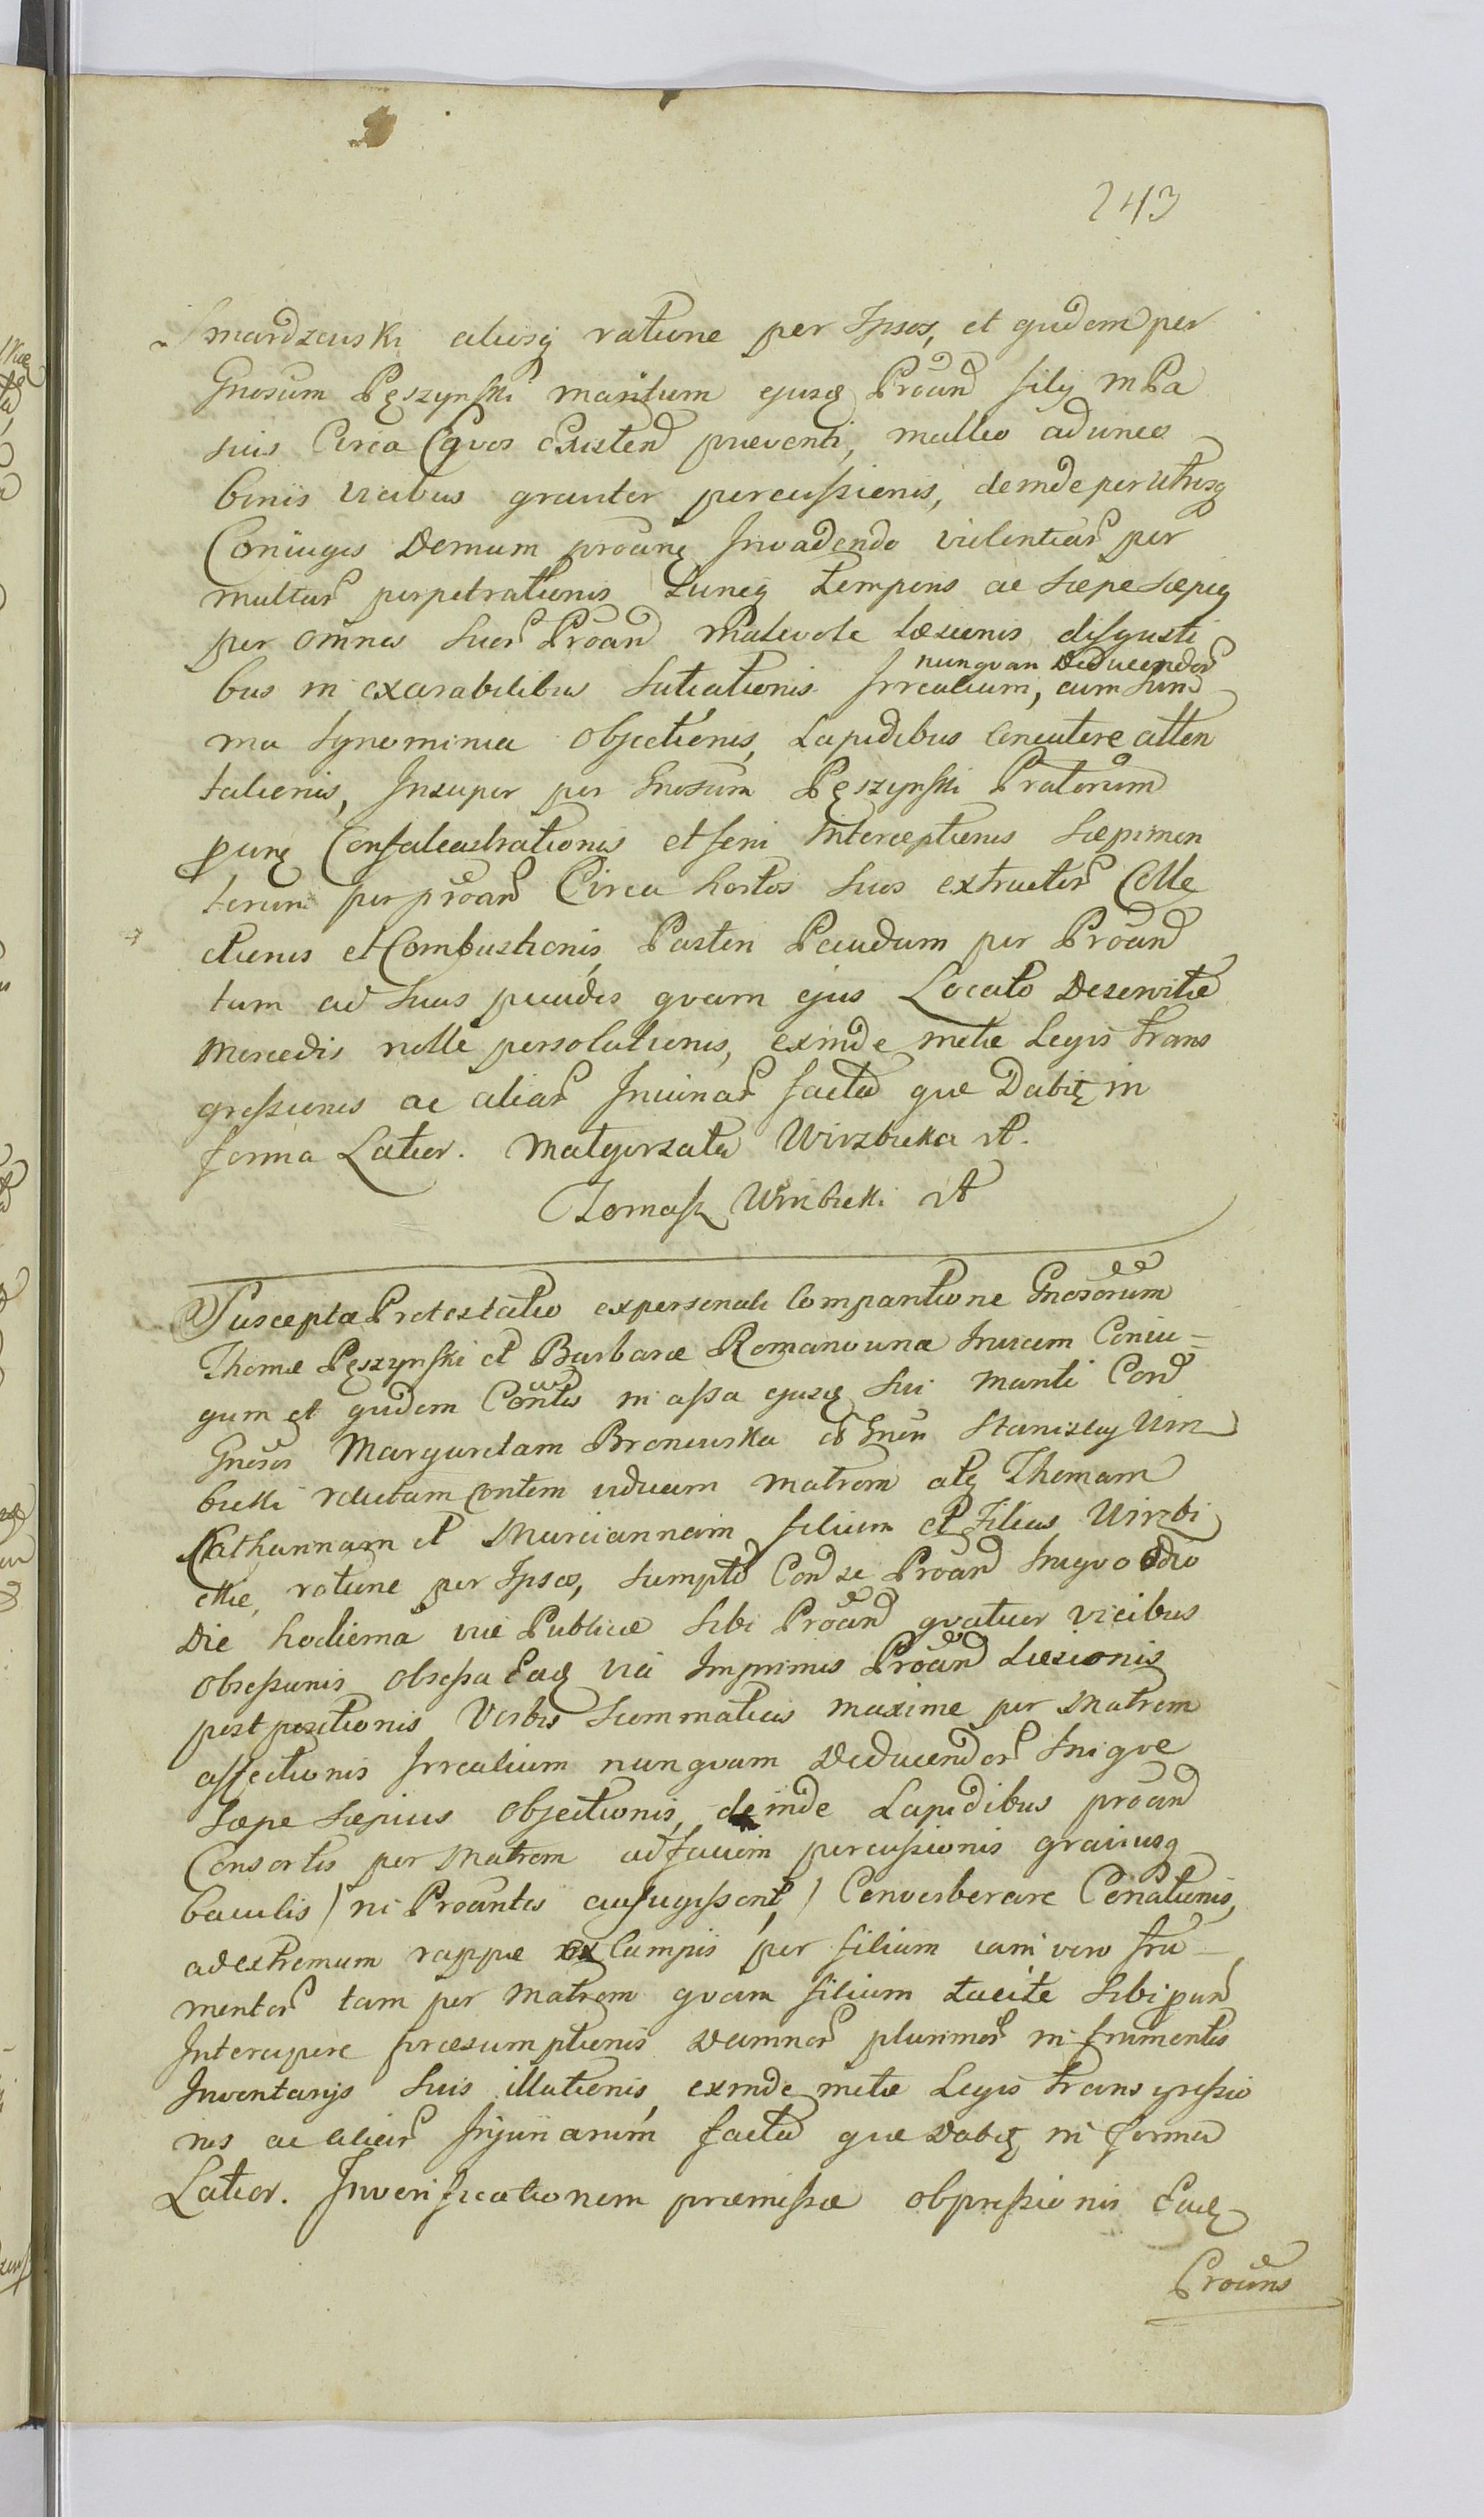 243
Smardzewski aliosq ratione per Ipsos, et quidem per
Gnosum Pęszynski maritum ejusq Proand filij m Pa
suis Circa Equos existend praeventi, malleo ad uneo
binis vicibus graviter percussionis, deinde per utrosq
Coniuges Domum proanq Invadendo violentiar per
multar perpetrationis Luneq Temporis ac saepe saepiq
per omnes suor Proand Malevole laesionis disgusti
nunquam Deducendor
bus in exarabilibus Sutiationis Irrealium, cum sum
ma Ignominia objectionis, Lapidibus Concutere atten
tationis, Insuper per Gnosum Pęszynski Pratorum
punq Confalcastrationis et feni Interceptionis saepimen
torum per proand Circa hortos suos extructor Colle
ctionis et Combustionis, Pastori Pecudum per Proand
tam ad suas pecudes quam ejus Locato Deservitae
Mercedis nolle persolutionis, exinde metae Legis trans
gressionis ac aliar Iniuriar facta que Dabit in
forma Latior. Małgorzata Wirzbicka rt.
Tomasz Wirzbicki rt
Suscepta Protestatio ex personali Comparitione Gnosorum
Thomae Pęszynski et Barbarae Romanowna Invicem Coniu=
gum et quidem Contis in assa ejusq sui mariti Cord
Gnosos Margaretam Broniewska ol Gnsi Stanislaj Wirz
bicki relictam Contem viduam matrem atq Thomam
Catharinam et Mariannam filium et Filias Wirzbi
ckie, ratione per Ipsos, sumpto Cord se Proand Iniquo odio
Die hodierna viae Publicae sibi Proand quatuor vicibus
obsessionis obsessa Eadq via Imprimis Proand Laesionis
post positionis Verbis scommaticis maxime per Matrem
affectionis Irrealium nunquam Deducendor Inique
saepe saepius objectionis, deinde Lapidibus proand
Consortis per Matrem ad faciem percussionis graviusq
baculis / ni Proantes aufugissent, / Converberare Conationis,
ad extremum rappae ex Campis per filium iam vero fru=
mentor tam per Matrem quam filium tacite sibi pund
Intercipere praesumptionis Damnor plurimor in frumentis
Inventarijs suis illationis, exinde metae Legis transgressio
nis ac aliar Injuriarum facta que Dabit in forma
Latior. In verificationem praemissae obpressionis Eadq
Proans